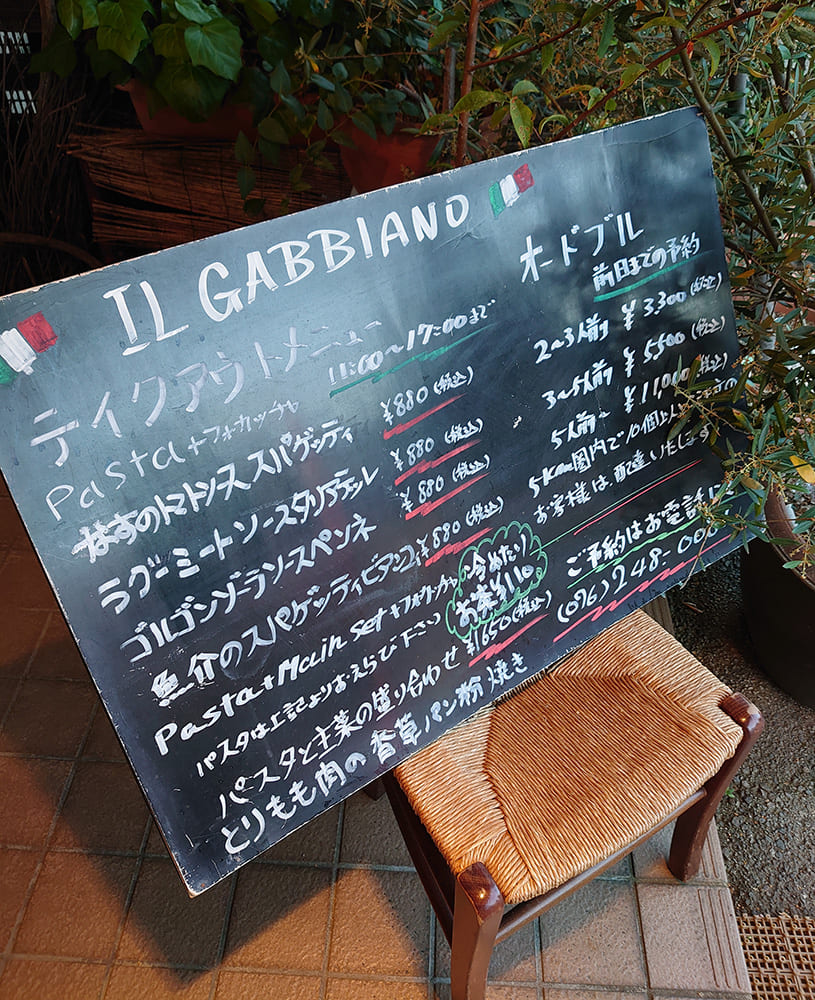 IL GABBIANO
テイクアウトメニュー
11:00〜17:00まで
Pasta+フォカッチャ
なすのトマトソーススパゲッティ ¥880(税込)
ラグーミートソースタリアテッレ ¥880(税込)
ゴルゴンゾーラソースペンネ ¥880(税込)
魚介のスパゲッティビアンコ ¥880(税込)
Pasta+Main Set+フォカッチャ
冷めたい
お茶¥110
パスタは上記よりおえらび下さい
パスタと主菜の盛り合わせ ¥1650(税込)
とりもも肉の香草パン粉焼き
オードブル
前日までの予約
2〜3人前 ¥3,300(税込)
3〜5人前 ¥5,500(税込)
5人前〜 ¥11,000(税込)
5km圏内で10個以上
お客様は配達いたします
ご予約はお電話に
(076)248-00